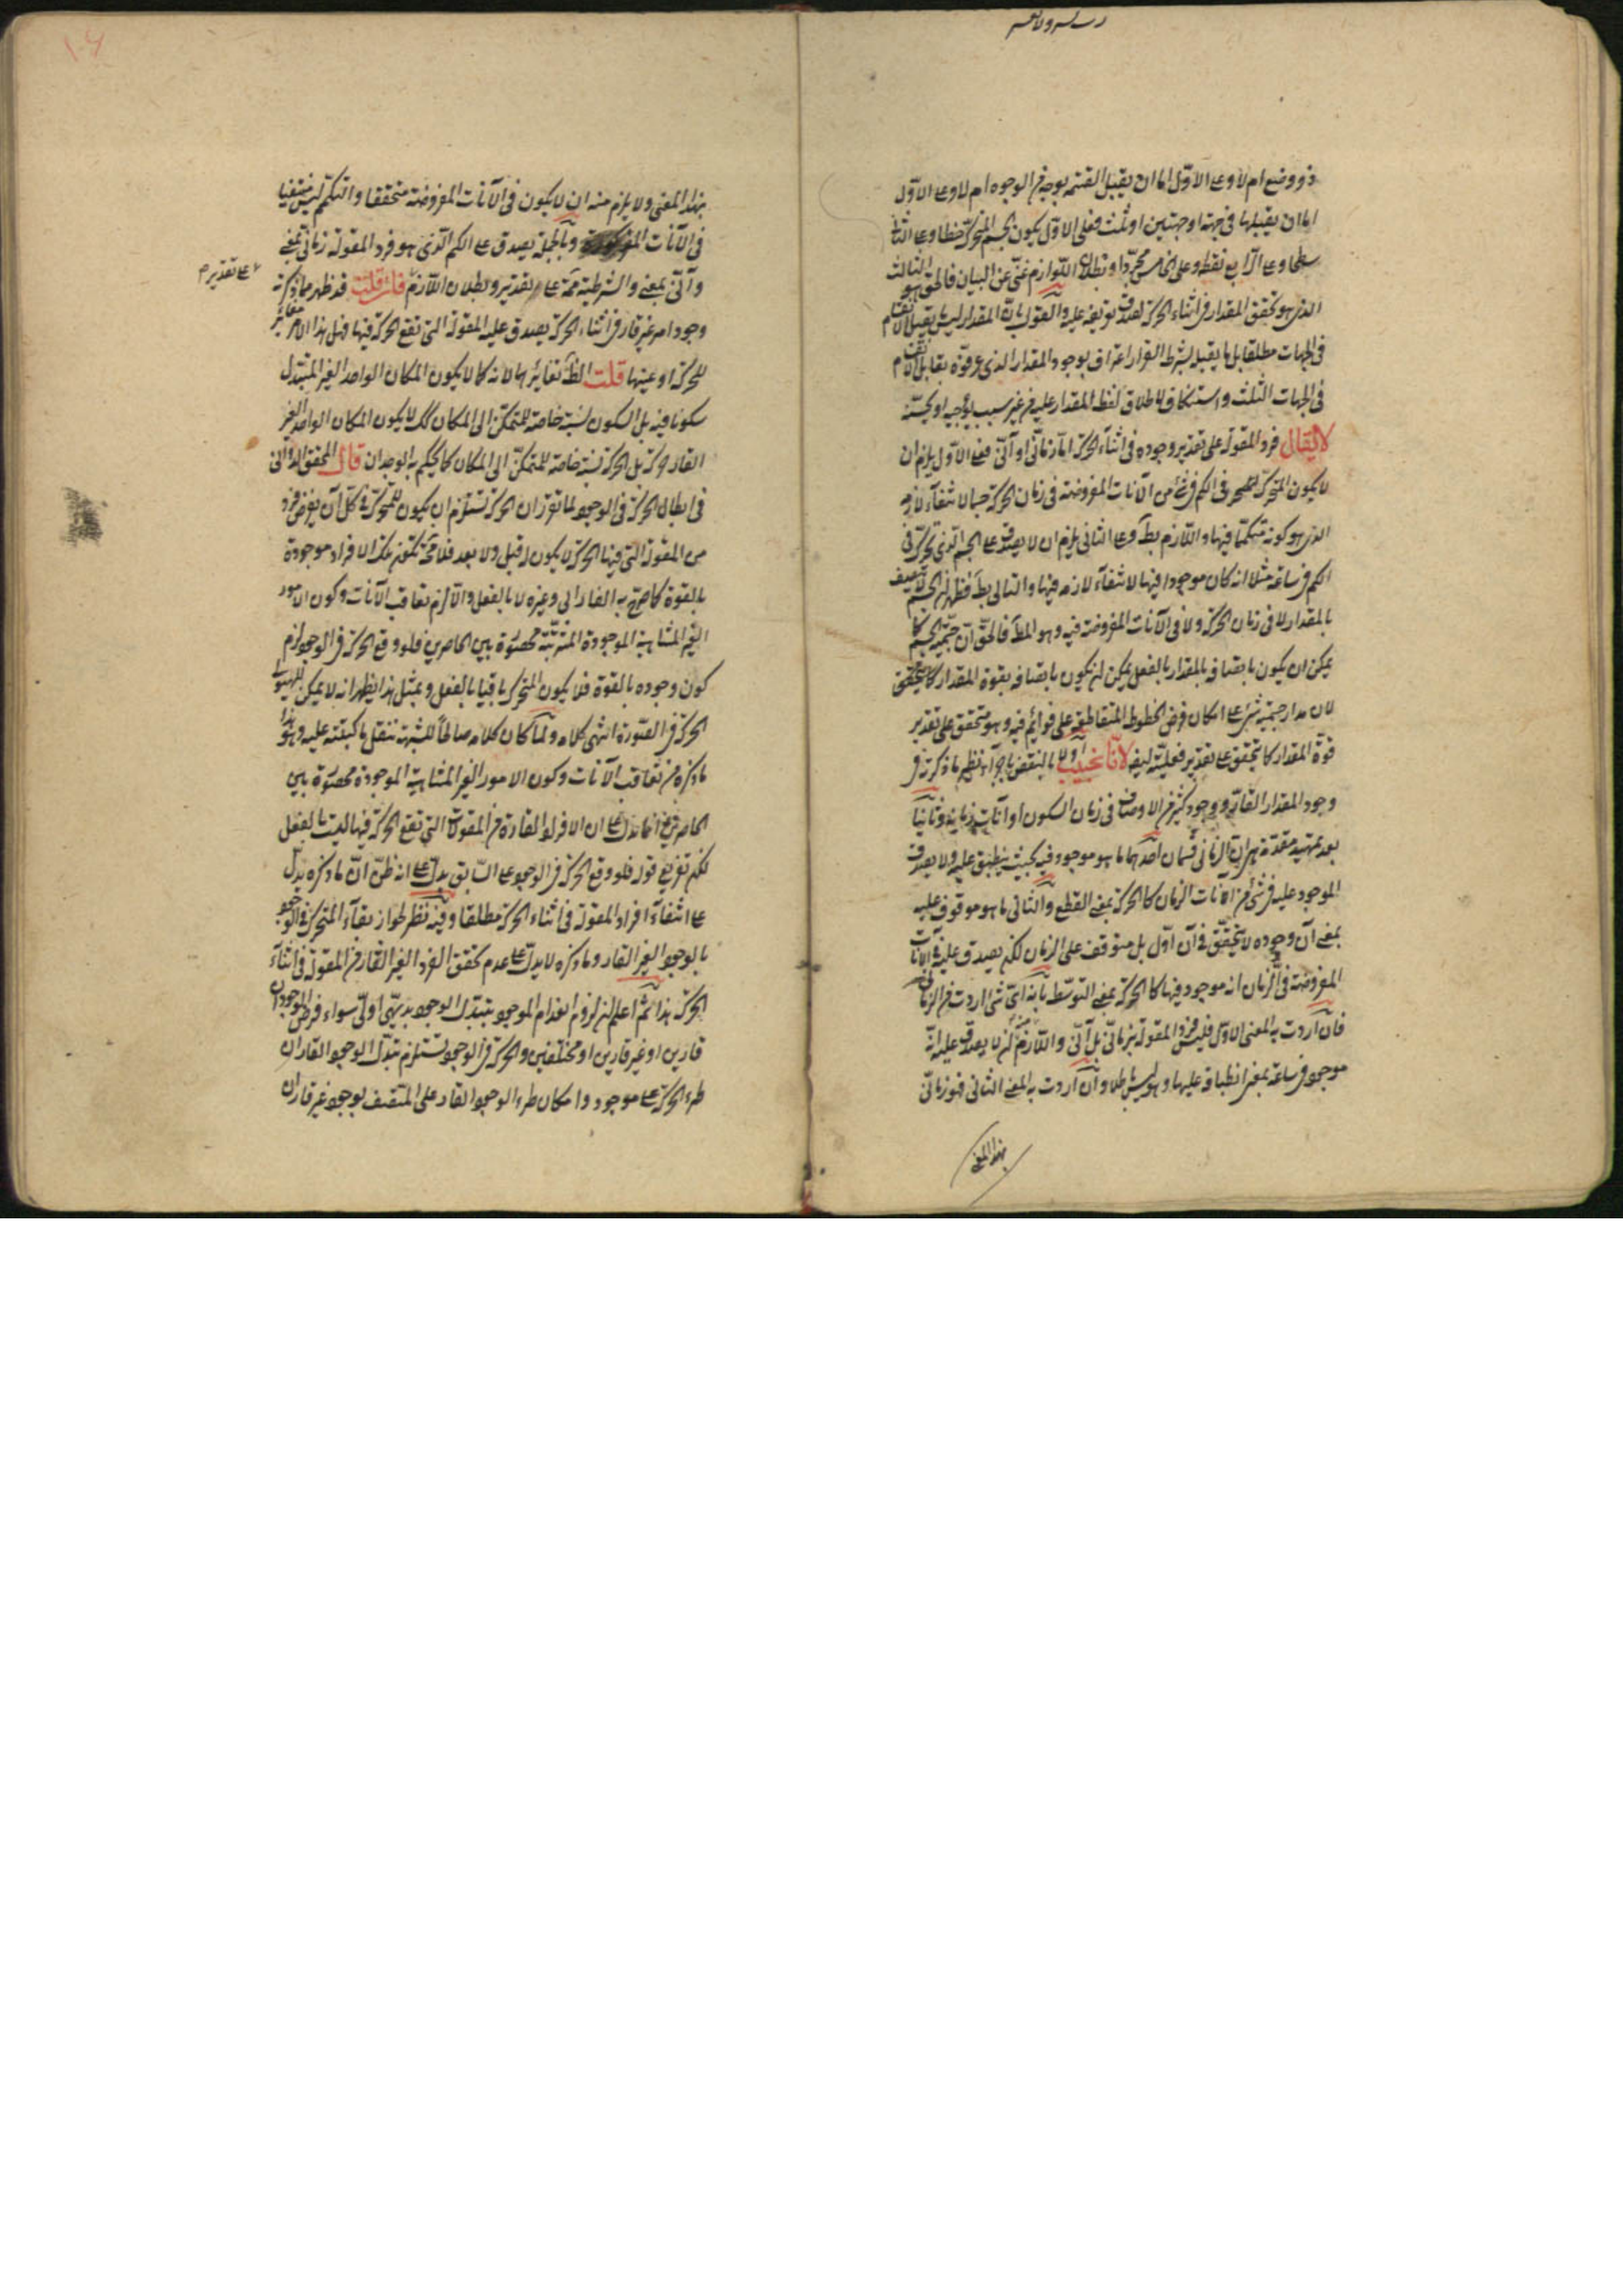 ذو وضع ام لا وعلى الاول اما ان يقبل القسمة بوجه من الوجوه ام لا وعلى الاول
اما ان يقبلها في جهة او جهتين او ثلث فعلى الاول يكون الجسم المتحرك خطا وعلى الثانى
سطحا وعلى الرابع نقطة وعلى الخامس مجردا وبطلان اللوازم غنى عن البيان فالحق هو الثالث
الذى هو تحقق المقدار في اثناء الحركة لصدق تعريفه عليه والقول بان المقدار ليس يقبل الانقسام
في الجهات مطلقا بل ما يقبل بشرط القرار اعتراف بوجود المقدار الذى عرفوه بقابل الانقسام
في الجهات الثلث واستنكاف لاطلاق لفظ المقدار عليه من غير سبب يوجبه او يحسنه
لا يقال فرد المقولة على تقدير وجوده في اثناء الحركة اما زمانى او آنى فعلى الاول يلزم ان
لا يكون المتحرك في الكم في شئ من الآنات المفروضة في زمان الحركة جسما لانتفاء لازمه
الذى هو كونه متكمما فيها واللازم بط وعلى الثانى يلزم ان لا يصدق على الجسم الذى تحرك في
الكم في ساعة مثلا انه كان موجودا فيها لانتفاء لازمه فيها والتالى بط فظهر ان الجسم لا يتصف
بالمقدار لا في زمان الحركة ولا في الآنات المفروضة فيه وهو المط فالحق ان جسمية الجسم كما
يمكن ان يكون باتصافه بالمقدار بالفعل يمكن ان يكون باتصافه بقوة المقدار
لان مدار جسمية شئ على امكان فرض الخطوط المتقاطعة على قوائم فيه وهو متحقق على تقدير
قوة المقدار كما يتحقق على تقدير فعليته ايضا لانا نجيب اولا بالنقض باجراء نظير ما ذكرت في
وجود المقدار القار ووجود كثير من الاوصاف في زمان السكون او آنات زمانه وثانيا
بعد تمهيد مقدمة هى ان الزمانى قسمان احدهما ما هو موجود فيه بحيث ينطبق عليه ولا يصدق
الموجود عليه في شئ من آنات الزمان كالحركة بمعنى القطع والثانى ما هو موقوف عليه
بمعنى ان وجوده لا يتحقق في آن اول بل متوقف على الزمان لكن يصدق عليه في الآنات
المفروضة في الزمان انه موجود فيها كالحركة بمعنى التوسط بانه اى شئ اردت من الزمانى
فان اردت به المعنى الاول فليس فرد المقولة بزمانى بل آنى واللازم ان لا يصدق عليه انه
موجود في ساعة بمعنى انطباقه عليها وهو ليس بباطل وان اردت به المعنى الثانى فهو زمانى
بهذا المعنى
بهذا المعنى ولا يلزم منه ان لا يكون في الآنات المفروضة متحققا والتكمم ليس منتفيا
في الآنات المذكورة وبالجملة يصدق على الكم الذى هو فرد المقولة زمانى بمعنى
وآنى بمعنى والشرطية ممة على تقدير وبطلان اللازم فان قلت قد ظهر مما ذكرته
على تقدير م
وجود امر غير قار في اثناء الحركة يصدق عليه المقولة التى تقع الحركة فيها فهل هذا الامر مغاير
للحركة او عينها قلت الظ تغايرهما لانه كما لا يكون المكان الواحد الغير المتبدل
سكونا فيه بل السكون نسبة خاصة للمتمكن الى المكان كك لا يكون المكان الواحد الغير
القار حركة بل الحركة نسبة خاصة للمتمكن الى المكان كما يحكم به الوجدان قال المحقق الدوانى
في ابطال الحركة في الوجود لما تقرر ان الحركة تستلزم ان يكون للمتحرك في كل آن يفرض فرد
من المقولة التى فيها الحركة لا يكون قبل ولا بعد فلا محة تكون تلك الافراد موجودة
بالقوة كما صرح به الفارابى وغيره لا بالفعل والا لزم تعاقب الآنات وكون الامور
الغير المتناهية الموجودة المترتبة محصورة بين الحاصرين فلو وقع الحركة في الوجود لزم
كون وجوده بالقوة فلا يكون المتحرك باقيا بالفعل وبمثل هذا يظهر انه لا يمكن للهيولى
الحركة في الصورة انتهى كلامه ولما كان كلامه صالحا للشبهة ننقل ما كتبته عليه وهو هذا
ما ذكره من تعاقب الآنات وكون الامور الغير المتناهية الموجودة محصورة بين
الحاصرين انما يدل على ان الافراد القارة من المقولات التى تقع الحركة فيها ليست بالفعل
لكن تفريع قوله فلو وقع الحركة في الوجود على السابق يدل على انه ظن ان ما ذكره يدل
على انتفاء افراد المقولة في اثناء الحركة مطلقا وفيه نظر لجواز بقاء المتحرك في الوجود
بالوجود الغير القار وما ذكره لا يدل على عدم تحقق الفرد الغير القار من المقولة في اثناء
الحركة هذا ثم اعلم ان لزوم انعدام الموجود بتبدل الوجود بديهى اولى سواء فرض الموجودان
قارين او غير قارين او مختلفين والحركة في الوجود تستلزم تبدل الوجود القار ان
طرء الحركة على موجود وامكان طرء الوجود القار على المتصف بوجود غير قار ان